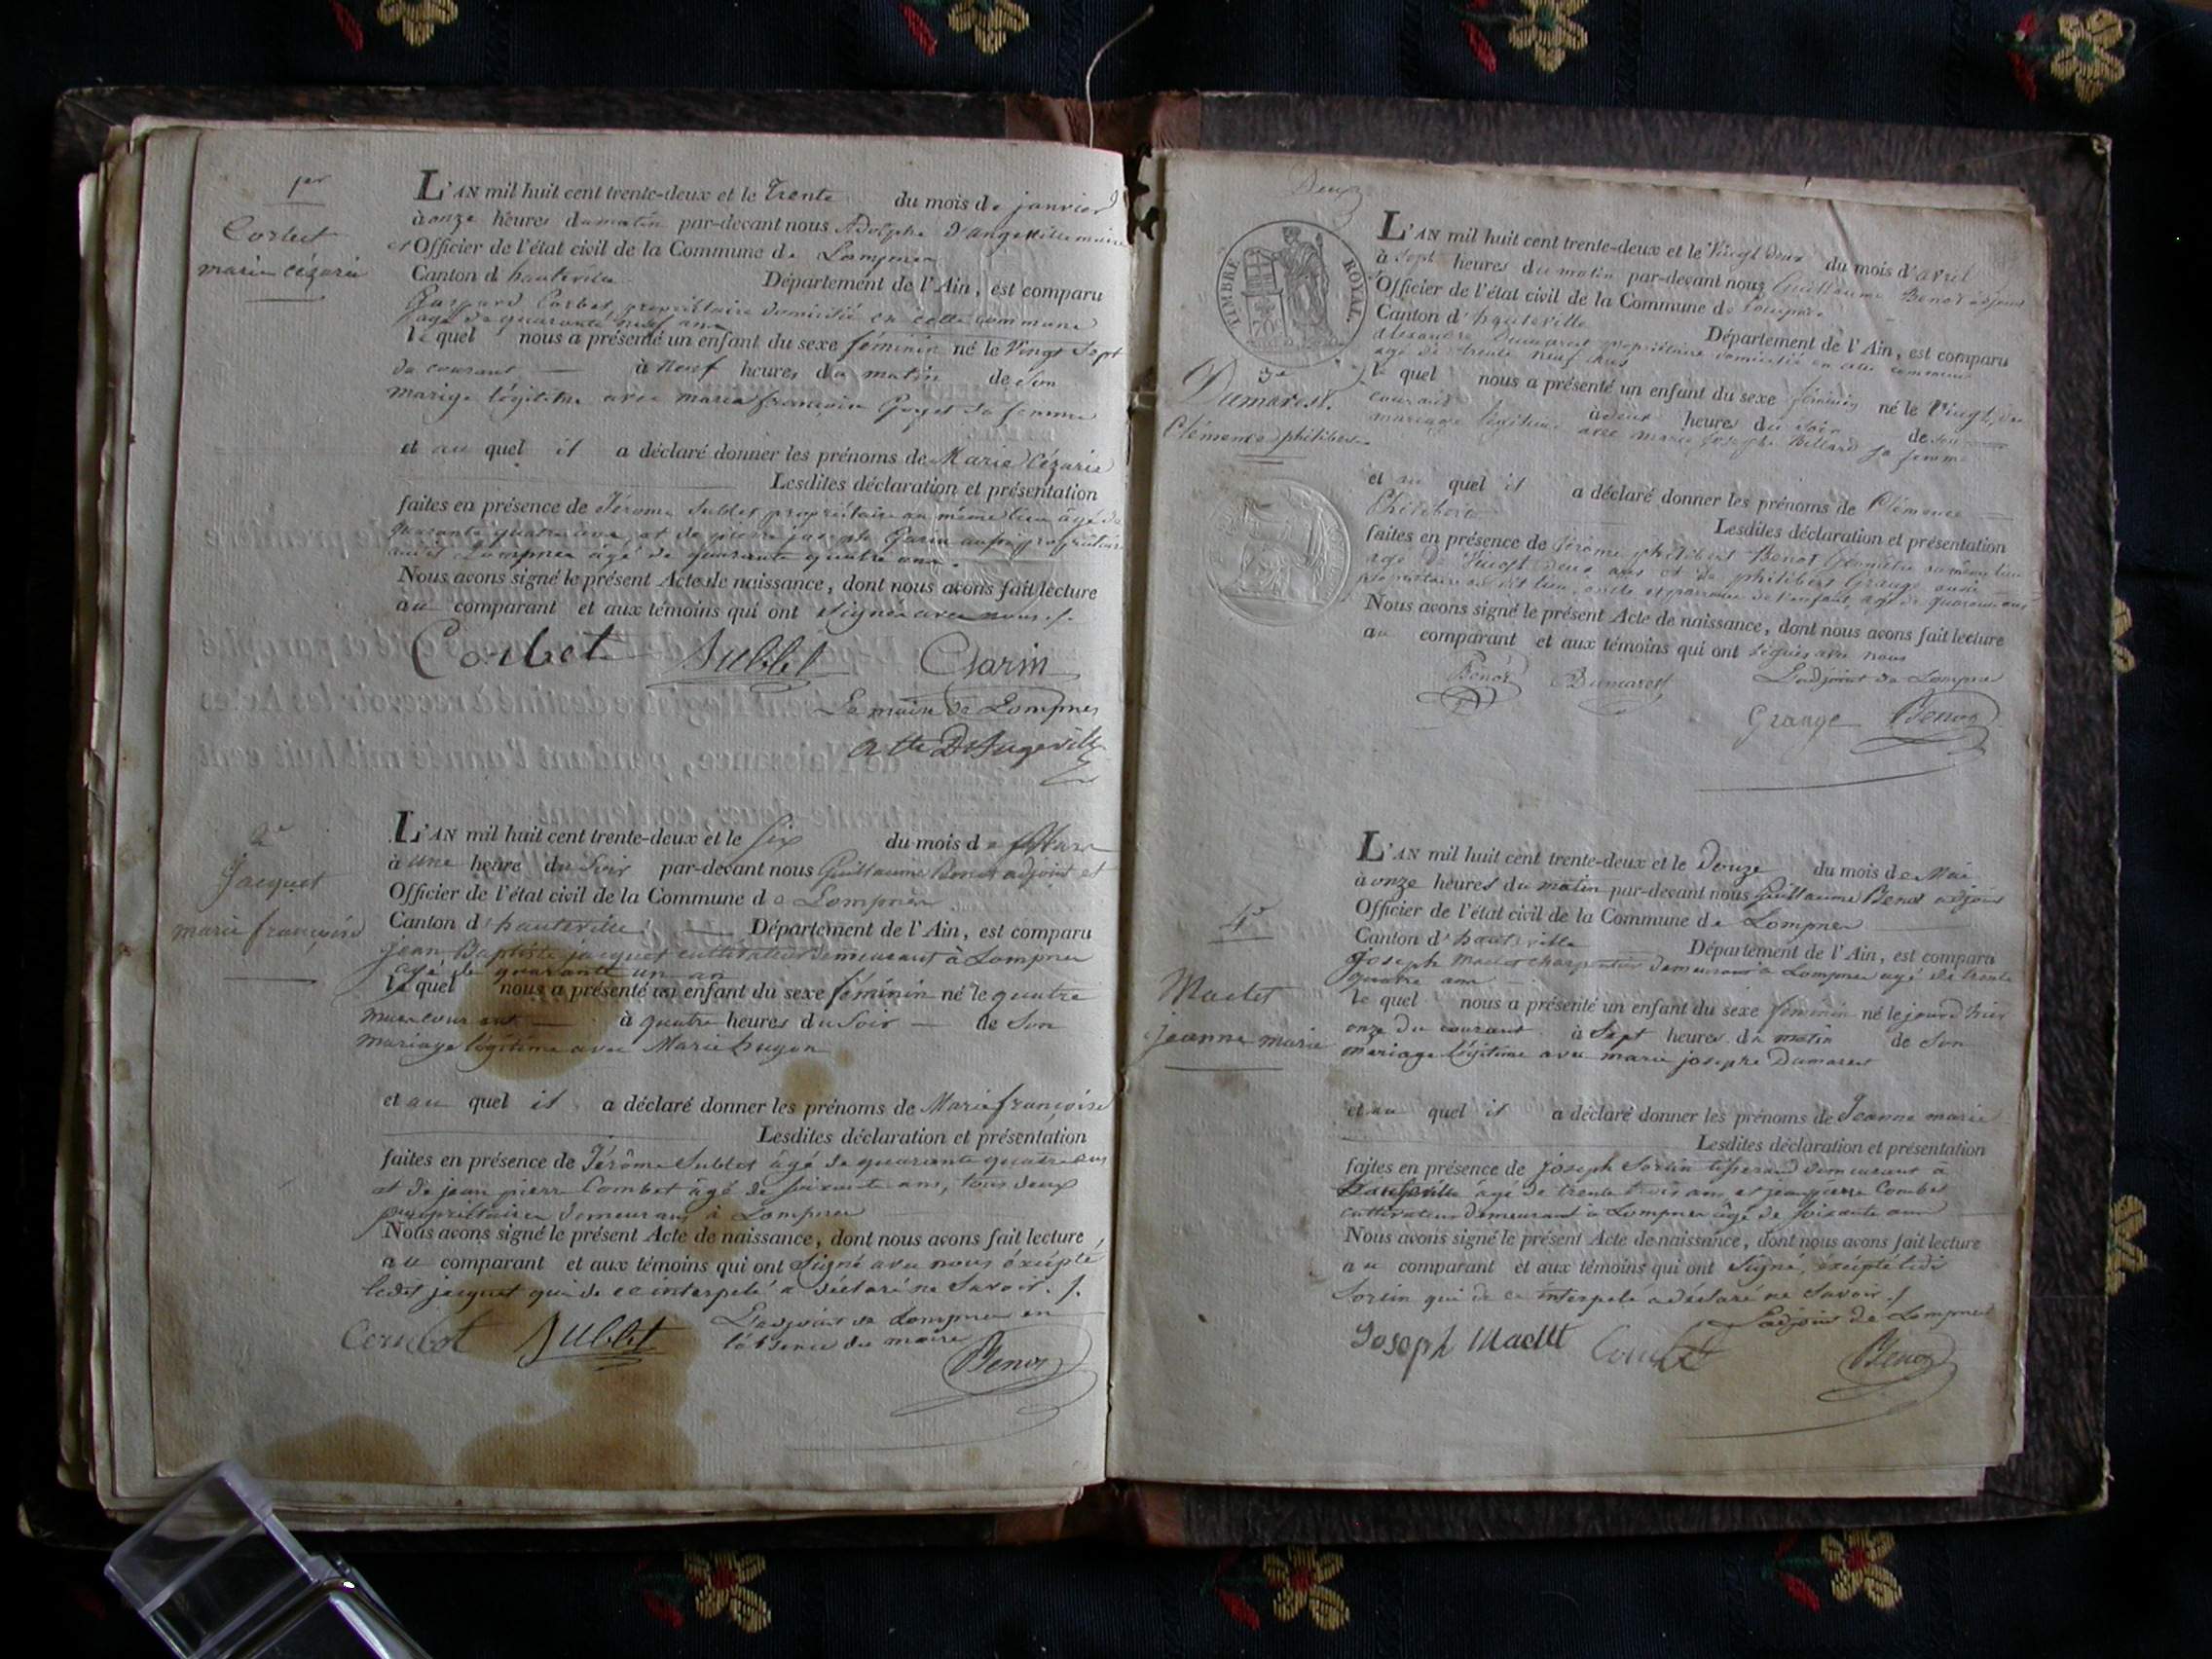 1er
Corbet
marie Cézarie
L'AN mil huit cent trente-deux et le trente du mois de janvier
à onze heures du matin par-devant nous Adolphe d'angeville maire
et Officier de l'état civil de la Commune de Lompnes
Canton d'hauteville Département de l'Ain, est comparu
Gaspard Corbet, propriétaire domicilié en cette commune
agé de quarante neuf ans
le quel nous a présenté un enfant du sexe féminin né le Vingt Sept
du courant à neuf heures du matin de son
mariage légitime avec marie françoise Goyet sa femme
et au quel il a déclaré donner les prénoms de Marie Cézarie
Lesdites déclaration et présentation
faites en présence de Jérome Sublet propriétaire au même lieu âgé de
quarante quatre ans, et de pierre joseph Garin aussi propriétaire
audit Lompnes âgé de quarante quatre ans.
Nous avons signé le présent Acte de naissance, dont nous avons fait lecture
au comparant et aux témoins qui ont signés avec nous ./.
Corbet Sublet Garin
Le maire de Lompnes
D'Angeville
2e
Jacquet
marie françoise
L'AN mil huit cent trente-deux et le Six du mois de Mars
à une heure du Soir par-devant nous Guillaume Benot adjoint et
Officier de l'état civil de la Commune de Lompnes
Canton d'hauteville Département de l'Ain, est comparu
jean Baptiste jacquet cultivateur demeurant à Lompnes
agé de quarante un an
le quel nous a présenté un enfant du sexe féminin né le quatre
mars courant à quatre heures du Soir de Son
mariage légitime avec Marie hugon
et au quel il a déclaré donner les prénoms de Marie françoise
Lesdites déclaration et présentation
faites en présence de Jérôme Sublet âgé de quarante quatre ans
et de jean pierre Combet âgé de soixante ans, tous deux
propriétaires demeurans à Lompnes
Nous avons signé le présent Acte de naissance, dont nous avons fait lecture
au comparant et aux témoins qui ont Signé avec nous éxcépté
ledit jacquet qui de ce interpelé a déclaré ne Savoir ./.
Combet Sublet L'adjoint de Lompnes en
l'absence du maire
Benot
Deux
TIMBRE ROYAL.
3e
Dumarest.
Clémence philiberte
L'AN mil huit cent trente-deux et le Vingt deux du mois d'avril
à Sept heures du matin par-devant nous Guillaume Benot adjoint
Officier de l'état civil de la Commune de Lompnes
Canton d'hauteville Département de l'Ain, est comparu
alexandre Dumarest propriétaire domicilié en cette commune
agé de trente neuf ans
le quel nous a présenté un enfant du sexe féminin né le Vingt du
courant à deux heures du Soir de son
mariage légitime avec marie josephe Billard sa femme
et au quel il a déclaré donner les prénoms de Clémence
Philiberte
Lesdites déclaration et présentation
faites en présence de Jérôme philibert Benot Géomètre au même lieu
agé de Vingt deux ans et de philibert Grange aussi
propriétaire au dit lieu, oncle et parrain de l'enfant, agé de quarante ans
Nous avons signé le présent Acte de naissance, dont nous avons fait lecture
au comparant et aux témoins qui ont signés avec nous
Benot Dumarest L'adjoint de Lompnes
Grange Benot
4e
Maclet
jeanne marie
L'AN mil huit cent trente-deux et le Douze du mois de Mai
à onze heures du matin par-devant nous Guillaume Benot adjoint
Officier de l'état civil de la Commune de Lompnes
Canton d'hauteville Département de l'Ain, est comparu
joseph Maclet charpentier demeurant à Lompnes agé de trente
quatre ans
le quel nous a présenté un enfant du sexe féminin né le jourd'hier
onze du courant à Sept heures du matin de Son
mariage légitime avec marie josephe Dumarest
et au quel il a déclaré donner les prénoms de Jeanne marie
Lesdites déclaration et présentation
faites en présence de joseph Sorlin tisserand demeurant à
hauteville âgé de trente trois ans, et jean pierre Combet
cultivateur demeurant à Lompnes âgé de soixante ans
Nous avons signé le présent Acte de naissance, dont nous avons fait lecture
au comparant et aux témoins qui ont Signé, éxcépté ledit
Sorlin qui de ce interpelé a déclaré ne Savoir ./.
L'adjoint de Lompnes
Joseph Maclet Combet Benot